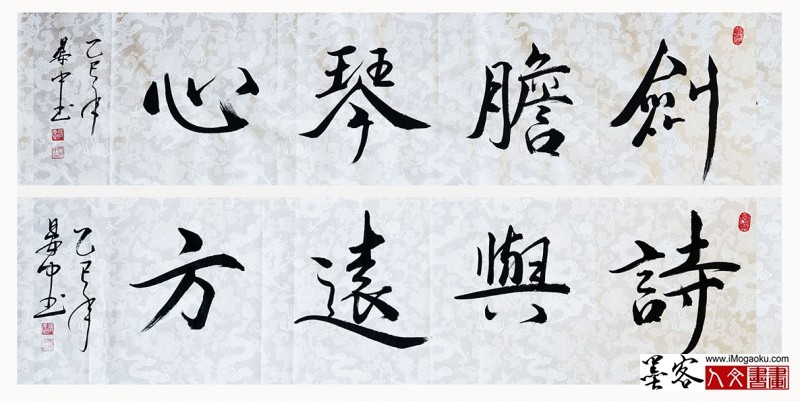 劍膽琴心
乙巳年
中书
詩與遠方
乙巳年
中书
墨客
www.iMogaoku.com
人文書畫